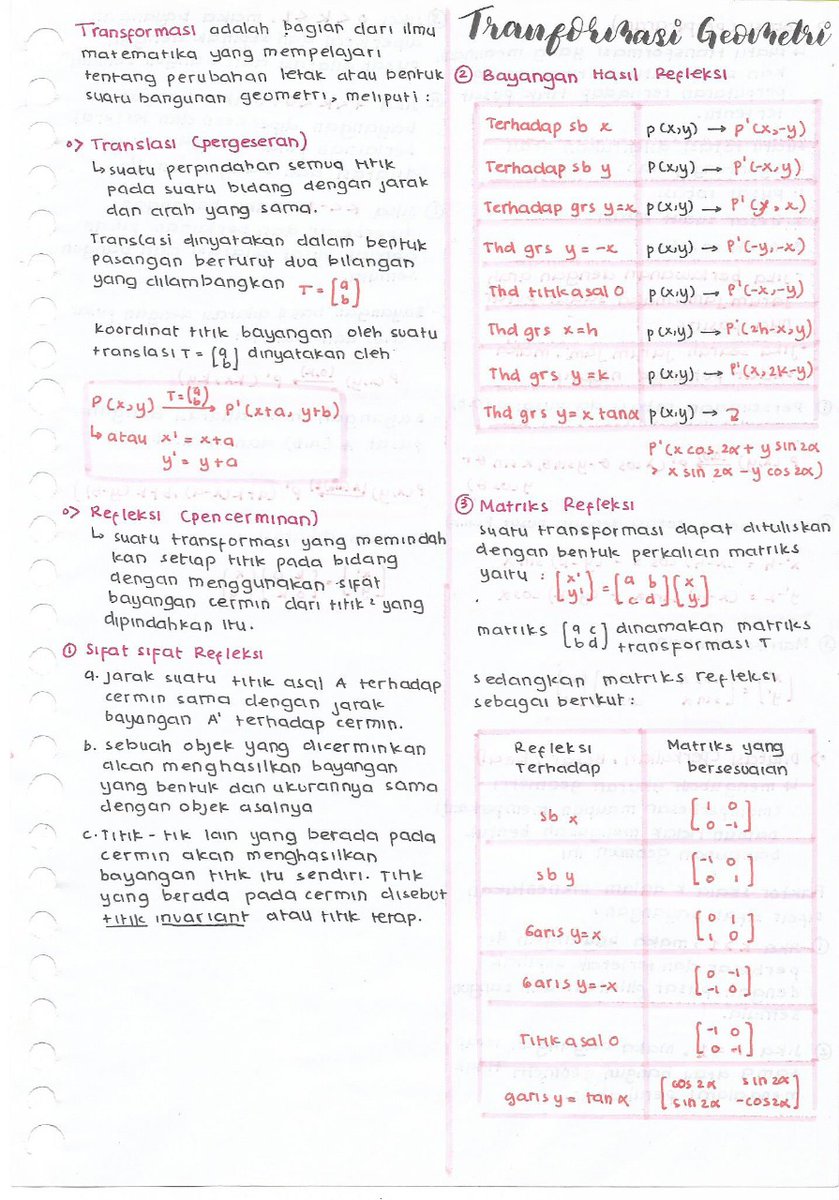 Tranformasi Geometri
Transformasi adalah bagian dari ilmu
matematika yang mempelajari
tentang perubahan letak atau bentuk
suatu bangunan geometri, meliputi :
o> Translasi (pergeseran)
↳ suatu perpindahan semua titik
pada suatu bidang dengan jarak
dan arah yang sama.
Translasi dinyatakan dalam bentuk
pasangan berturut dua bilangan
yang dilambangkan T = [a b]
koordinat titik bayangan oleh suatu
translasi T = [a b] dinyatakan oleh
P(x,y) T=(a b) → P'(x+a, y+b)
↳ atau x' = x+a
y' = y+a
o> Refleksi (pencerminan)
↳ suatu transformasi yang memindah
kan setiap titik pada bidang
dengan menggunakan sifat
bayangan cermin dari titik² yang
dipindahkan itu.
① Sifat sifat Refleksi
a. Jarak suatu titik asal A terhadap
cermin sama dengan jarak
bayangan A' terhadap cermin.
b. sebuah objek yang dicerminkan
akan menghasilkan bayangan
yang bentuk dan ukurannya sama
dengan objek asalnya
c. Titik - tik lain yang berada pada
cermin akan menghasilkan
bayangan titik itu sendiri. Titik
yang berada pada cermin disebut
titik invariant atau titik tetap.
② Bayangan Hasil Refleksi
Terhadap sb x P(x,y) → P'(x,-y)
Terhadap sb y P(x,y) → P'(-x,y)
Terhadap grs y=x P(x,y) → P'(y,x)
Thd grs y = -x P(x,y) → P'(-y,-x)
Thd titik asal O P(x,y) → P'(-x,-y)
Thd grs x=h P(x,y) → P'(2h-x,y)
Thd grs y=k P(x,y) → P'(x,2k-y)
Thd grs y=x tanα P(x,y) →
P'(x cos 2α + y sin 2α
> x sin 2α - y cos 2α)
③ Matriks Refleksi
suatu transformasi dapat dituliskan
dengan bentuk perkalian matriks
yaitu : [x' y'] = [a b c d] [x y]
matriks [a c b d] dinamakan matriks
transformasi T
sedangkan matriks refleksi
sebagai berikut :
Refleksi Terhadap Matriks yang bersesuaian
sb x [1 0 0 -1]
sb y [-1 0 0 1]
Garis y=x [0 1 1 0]
Garis y=-x [0 -1 -1 0]
Titik asal O [-1 0 0 -1]
garis y = tan α [cos 2α sin 2α sin 2α -cos 2α]